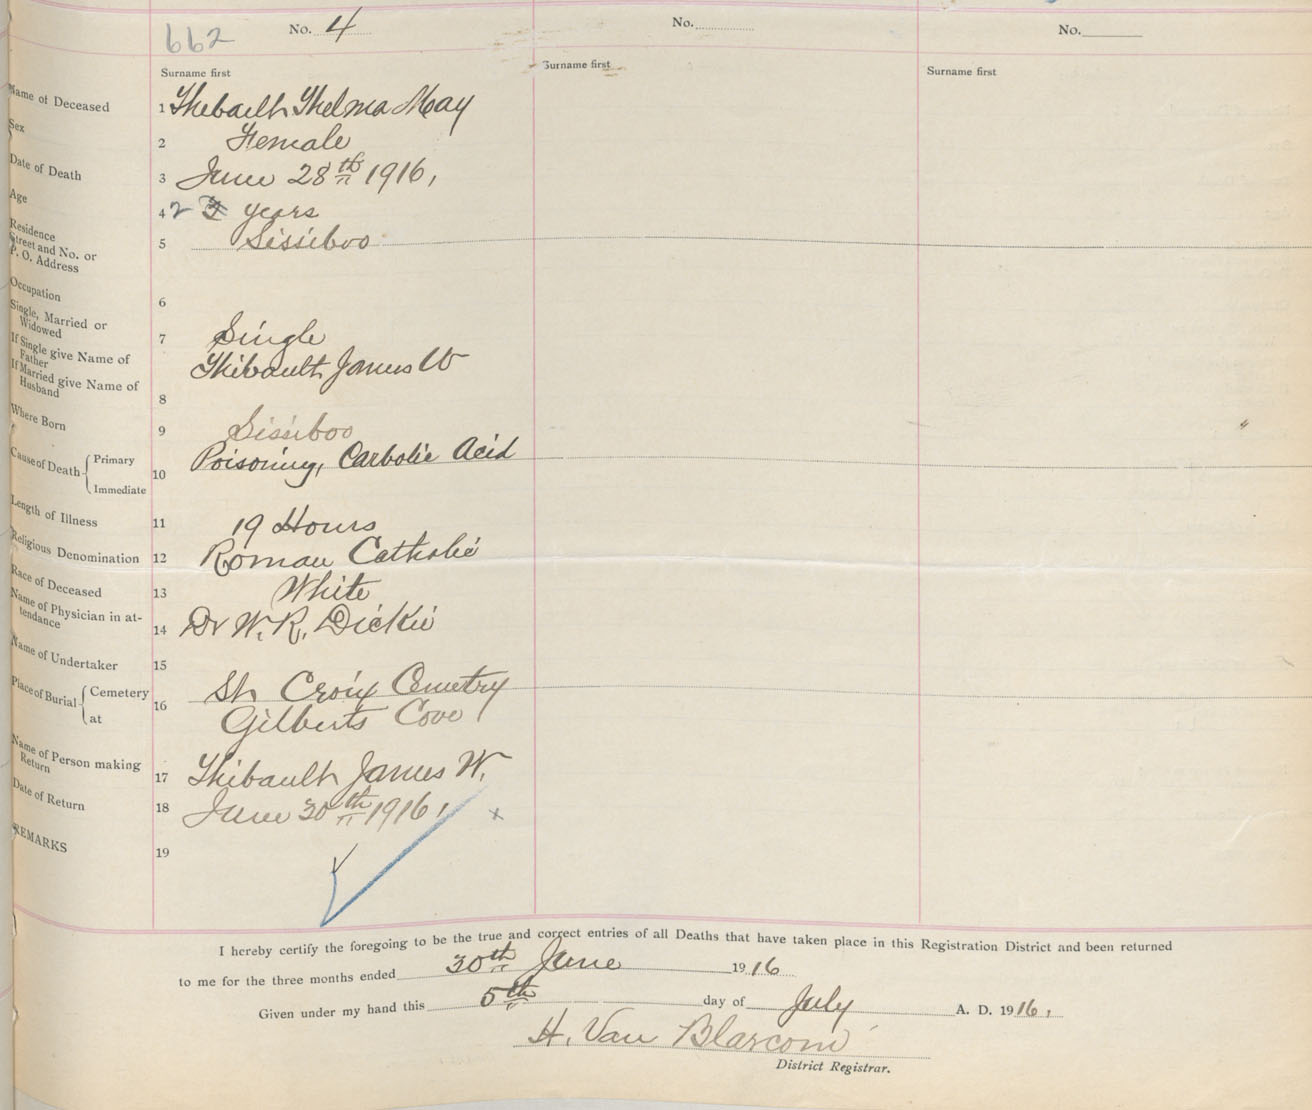 662 No. 4 No. No.
Surname first Surname first Surname first
Name of Deceased 1 Thebault Thelma May
Sex 2 Female
Date of Death 3 June 28th 1916,
Age 4 2 3 years
Residence
Street and No. or
P. O. Address 5 Sissiboo
Occupation 6
Single, Married or
Widowed 7 Single
If Single give Name of
Father Thibault James W
If Married give Name of
Husband 8
Where Born 9 Sissiboo
Cause of Death Primary Poisoning, Carbolic Acid
10
Immediate
Length of Illness 11 19 Hours
Religious Denomination 12 Roman Catholic
Race of Deceased 13 White
Name of Physician in at-
tendance 14 Dr W. R. Dickie
Name of Undertaker 15
Place of Burial Cemetery 16 St Croix Cemetry
at Gilberts Cove
Name of Person making
Return 17 Thibault James W.
Date of Return 18 June 30th 1916, x
REMARKS 19
I hereby certify the foregoing to be the true and correct entries of all Deaths that have taken place in this Registration District and been returned
to me for the three months ended 30th June 1916
Given under my hand this 5th day of July A. D. 1916,
H. Van Blarcom
District Registrar.